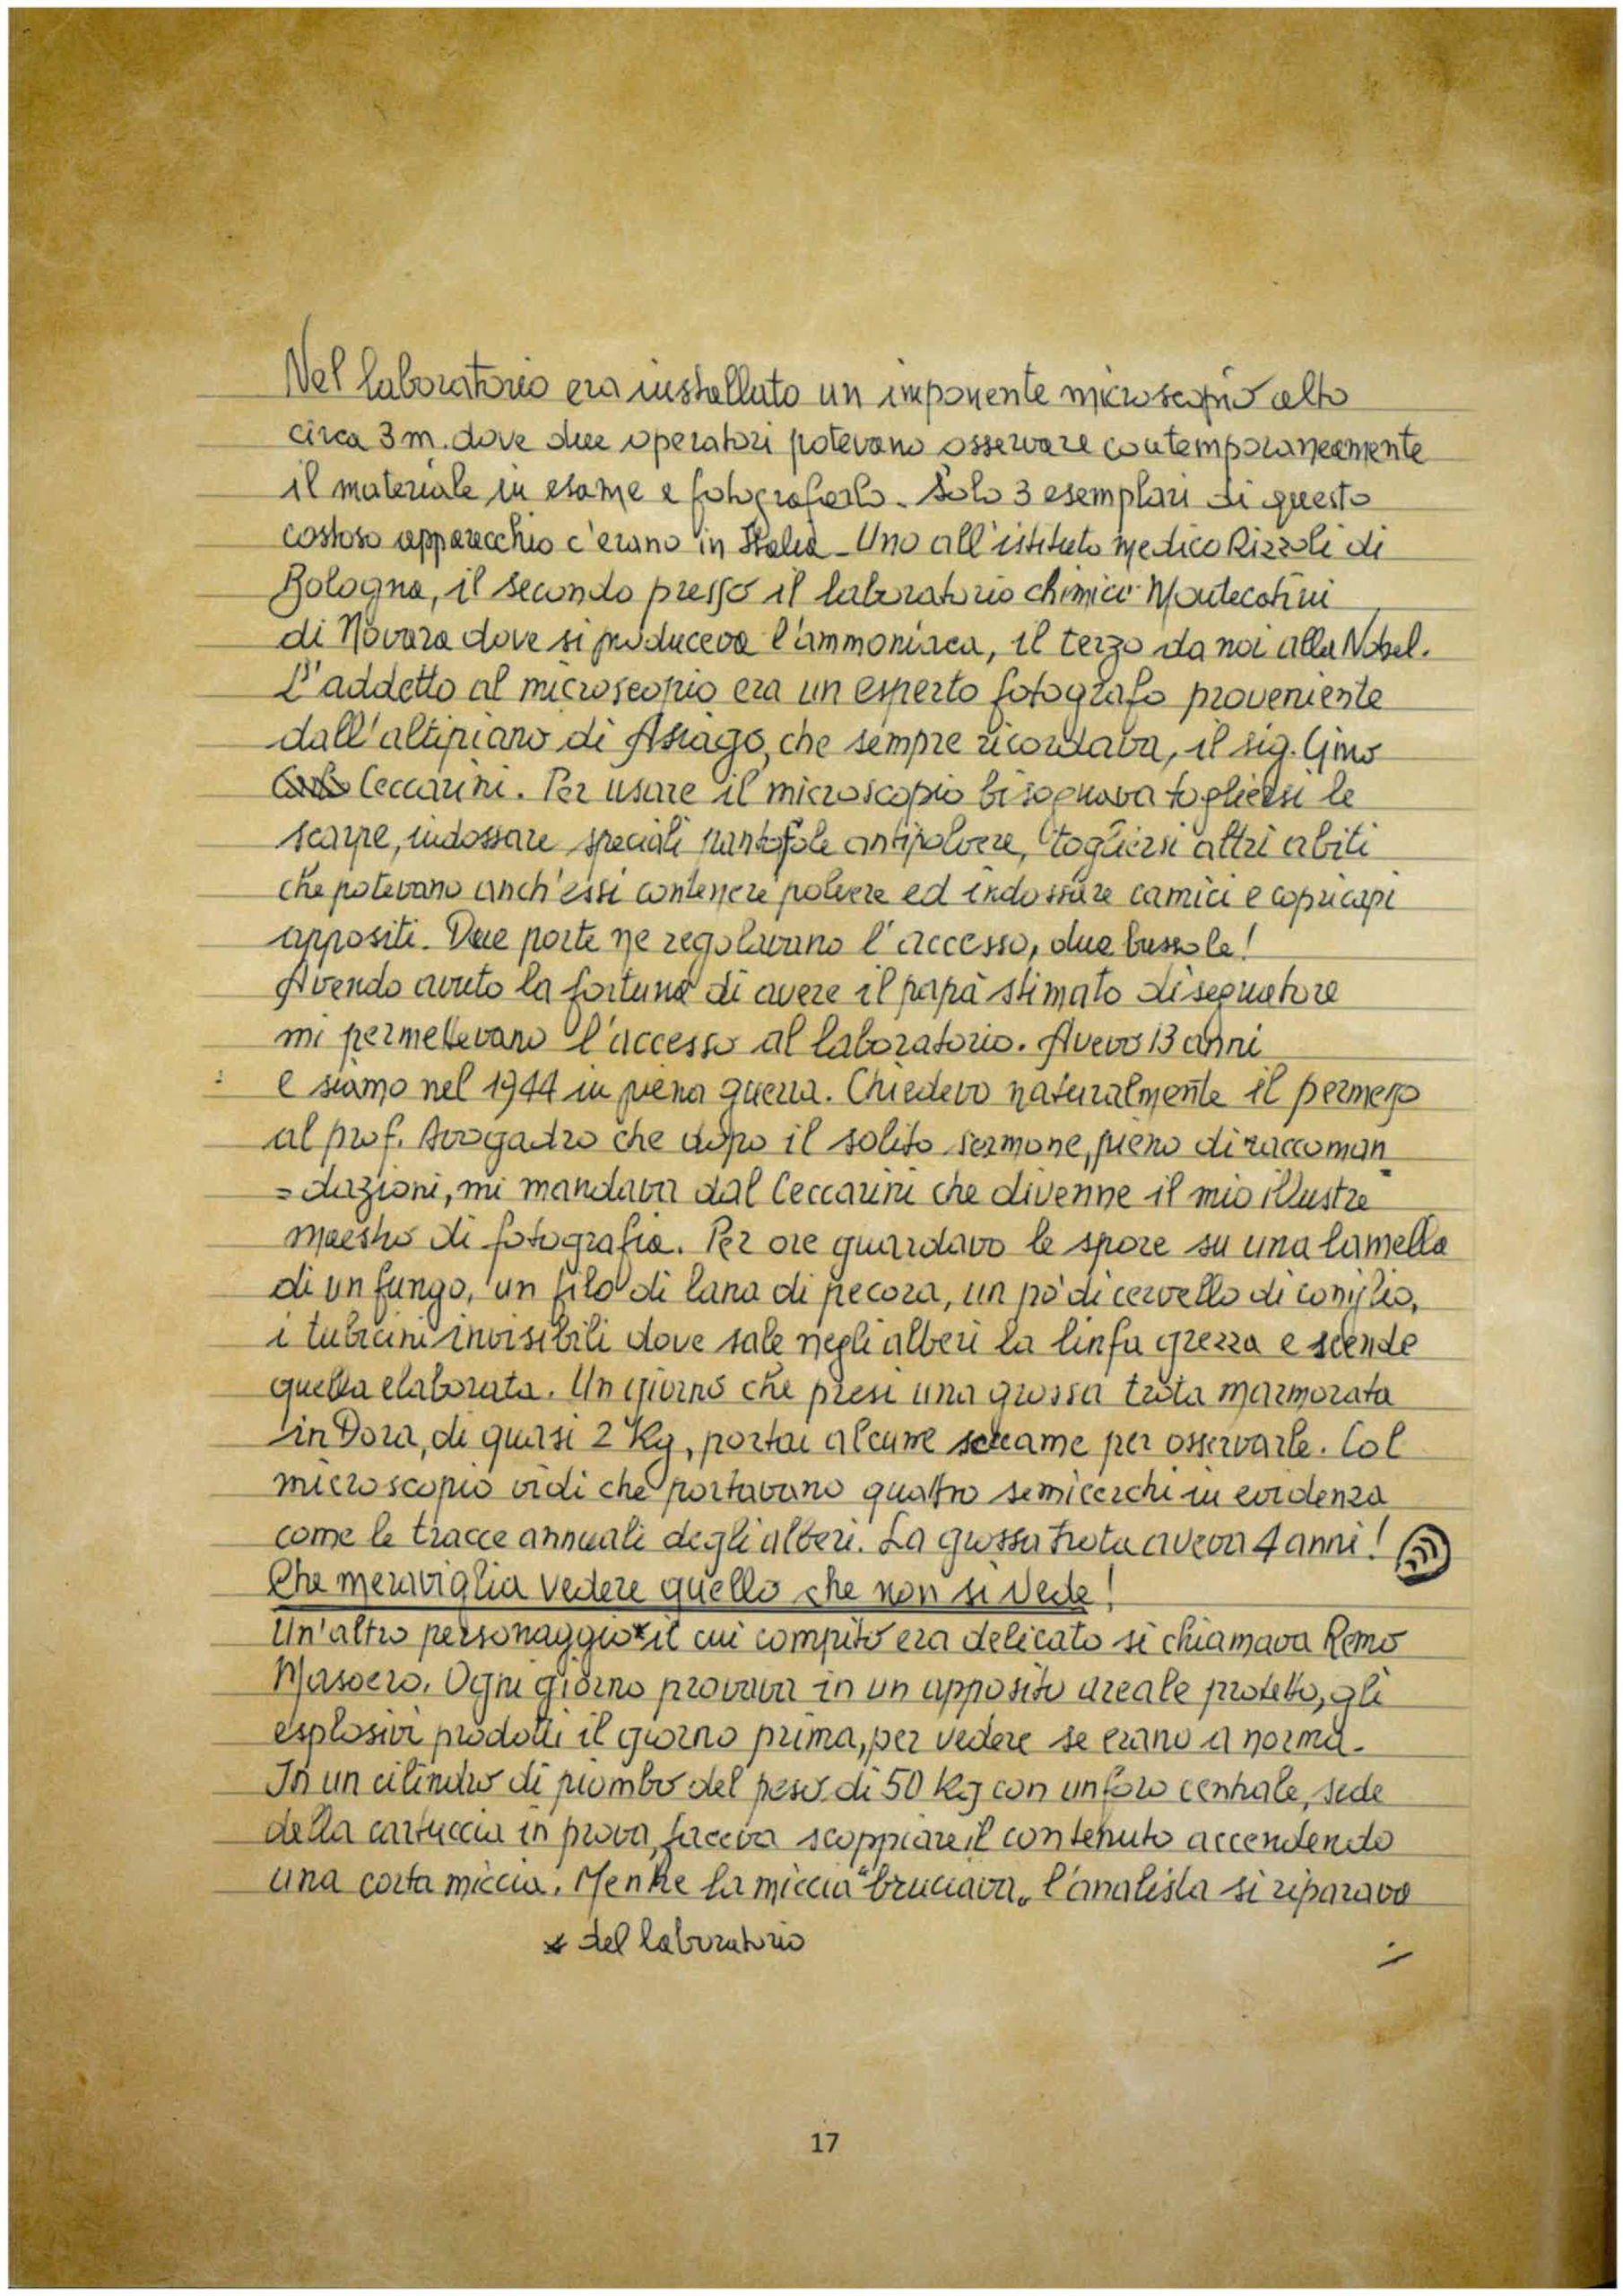 Nel laboratorio era installato un imponente microscopio alto
circa 3 m. dove due operatori potevano osservare contemporaneamente
il materiale in esame e fotografarlo. Solo 3 esemplari di questo
costoso apparecchio c'erano in Italia - Uno all'istituto medico Rizzoli di
Bologna, il secondo presso il laboratorio chimico Montecatini
di Novara dove si produceva l'ammoniaca, il terzo da noi alla Nobel.
L'addetto al microscopio era un esperto fotografo proveniente
dall'altipiano di Asiago, che sempre ricordava, il sig. Gino
Ceccarini. Per usare il microscopio bisognava togliersi le
scarpe, indossare speciali pantofole antipolvere, togliersi altri abiti
che potevano anch'essi contenere polvere ed indossare camici e copricapi
appositi. Due porte ne regolavano l'accesso, due bussole!
Avendo avuto la fortuna di avere il papà stimato disegnatore
mi permettevano l'accesso al laboratorio. Avevo 13 anni
e siamo nel 1944 in piena guerra. Chiedevo naturalmente il permesso
al prof. Avogadro che dopo il solito sermone, pieno di raccoman
=dazioni, mi mandava dal Ceccarini che divenne il mio illustre
maestro di fotografia. Per ore guardavo le spore su una lamella
di un fungo, un filo di lana di pecora, un pò di cervello di coniglio,
i tubicini invisibili dove sale negli alberi la linfa grezza e scende
quella elaborata. Un giorno che presi una grossa trota marmorata
in Dora, di quasi 2 Kg, portai alcune squame per osservarle. Col
microscopio vidi che portavano quattro semicerchi in evidenza
come le tracce annuali degli alberi. La grossa trota aveva 4 anni!
Che meraviglia vedere quello che non si vede!
Un'altro personaggio* il cui compito era delicato si chiamava Remo
Masoero. Ogni giorno provava in un apposito areale protetto, gli
esplosivi prodotti il giorno prima, per vedere se erano a norma.
In un cilindro di piombo del peso di 50 Kg con un foro centrale, sede
della cartuccia in prova, faceva scoppiare il contenuto accendendo
una corta miccia. Mentre la miccia "bruciava" l'analista si riparava
* del laboratorio
./.
17